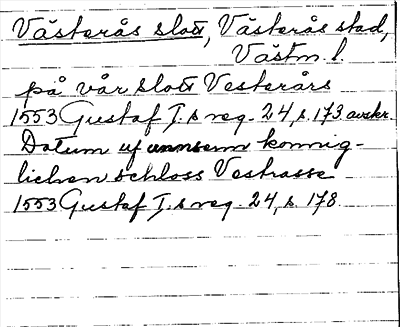 Västerås slott, Västerås stad,
Västm. l.
på vår slott Vesterårs
1553 Gustaf I.s reg. 24, s. 173 avskr.
Datum uf unnserm konnig-
lichen schloss Vestrasse
1553 Gustaf I.s reg. 24, s. 178.